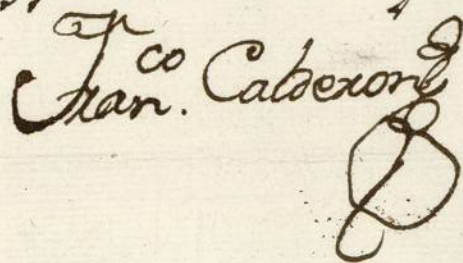 Fran.co Calderon